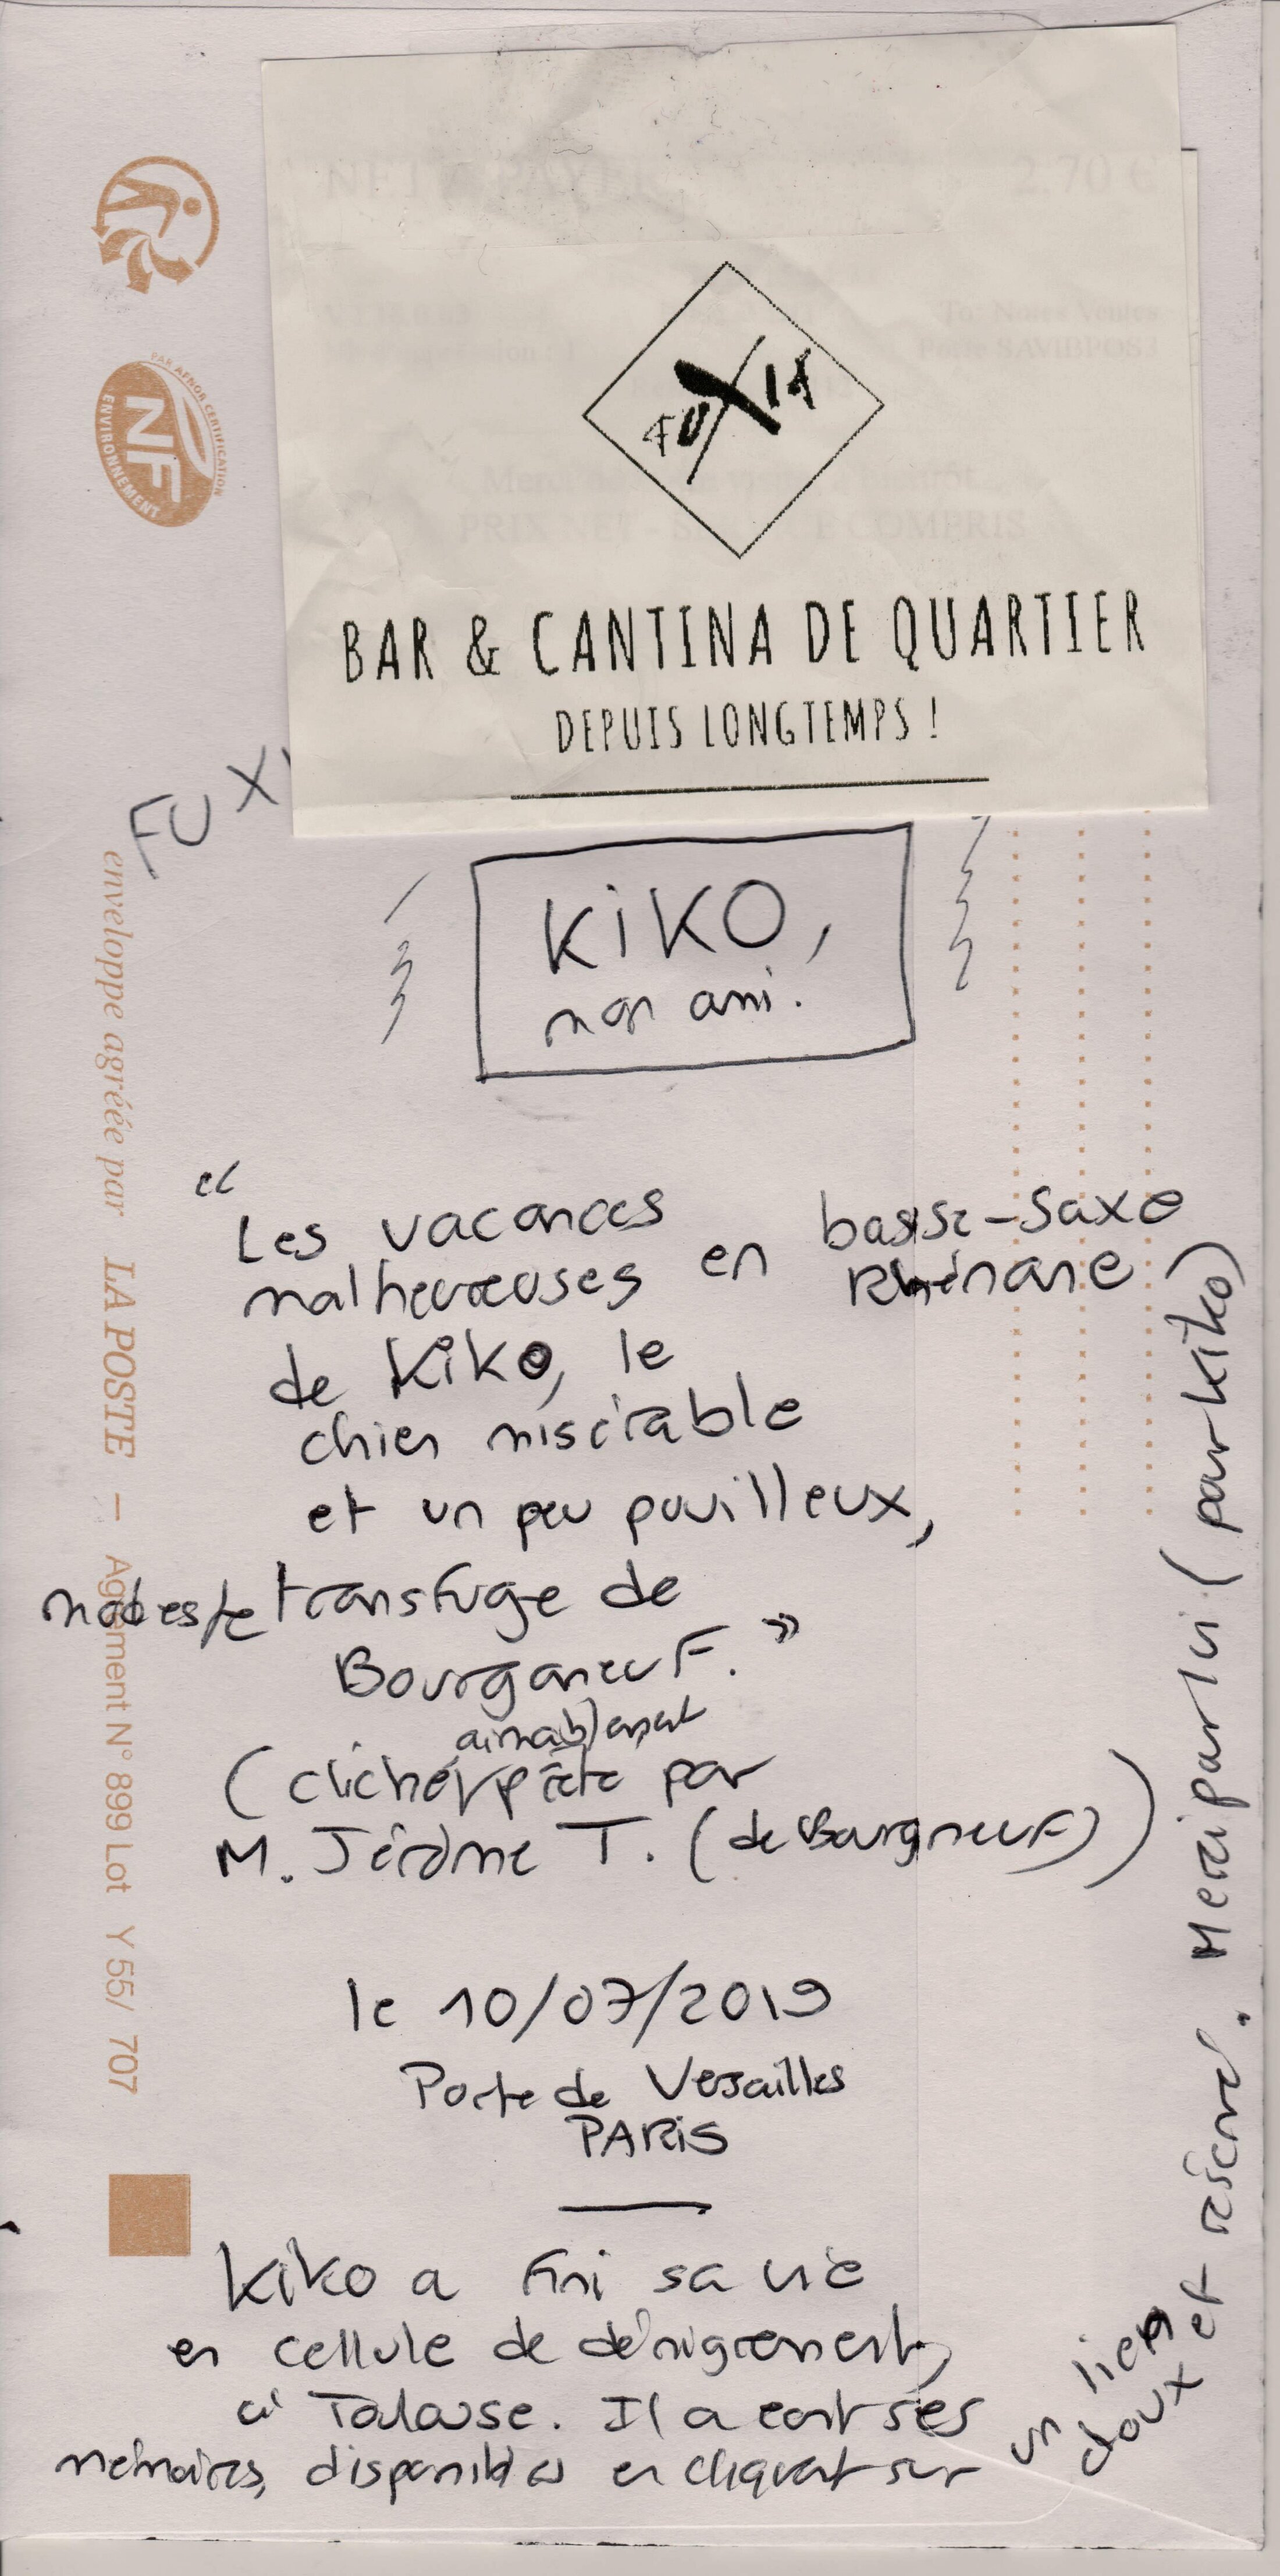 NET A PAYER 2.70 €
To: Notes Ventes
Poste SAVIBPOS1
FUXIA
PRIX NET - SERVICE COMPRIS
BAR & CANTINA DE QUARTIER
DEPUIS LONGTEMPS !
PAR AFNOR CERTIFICATION
NF
ENVIRONNEMENT
FUX
enveloppe agréée par LA POSTE – Agrément N° 899 Lot Y 55/ 707
KiKO,
mon ami.
"Les vacances
malheureuses en basse-Saxe
Rhénane
de Kiko, le
chien misérable
et un peu pouilleux,
modeste transfuge de
Bourganeuf. »
aimablement
(cliché prêté par
M. Jérôme T. (de Bourgneuf))
le 10/07/2019
Porte de Versailles
PARiS
Kiko a fini sa vie
en cellule de dénigrement,
à Toulouse. Il a écrit ses
mémoires, disponibles en cliquant sur
un lien
doux et réservé. Merci par lui (pour kiko)